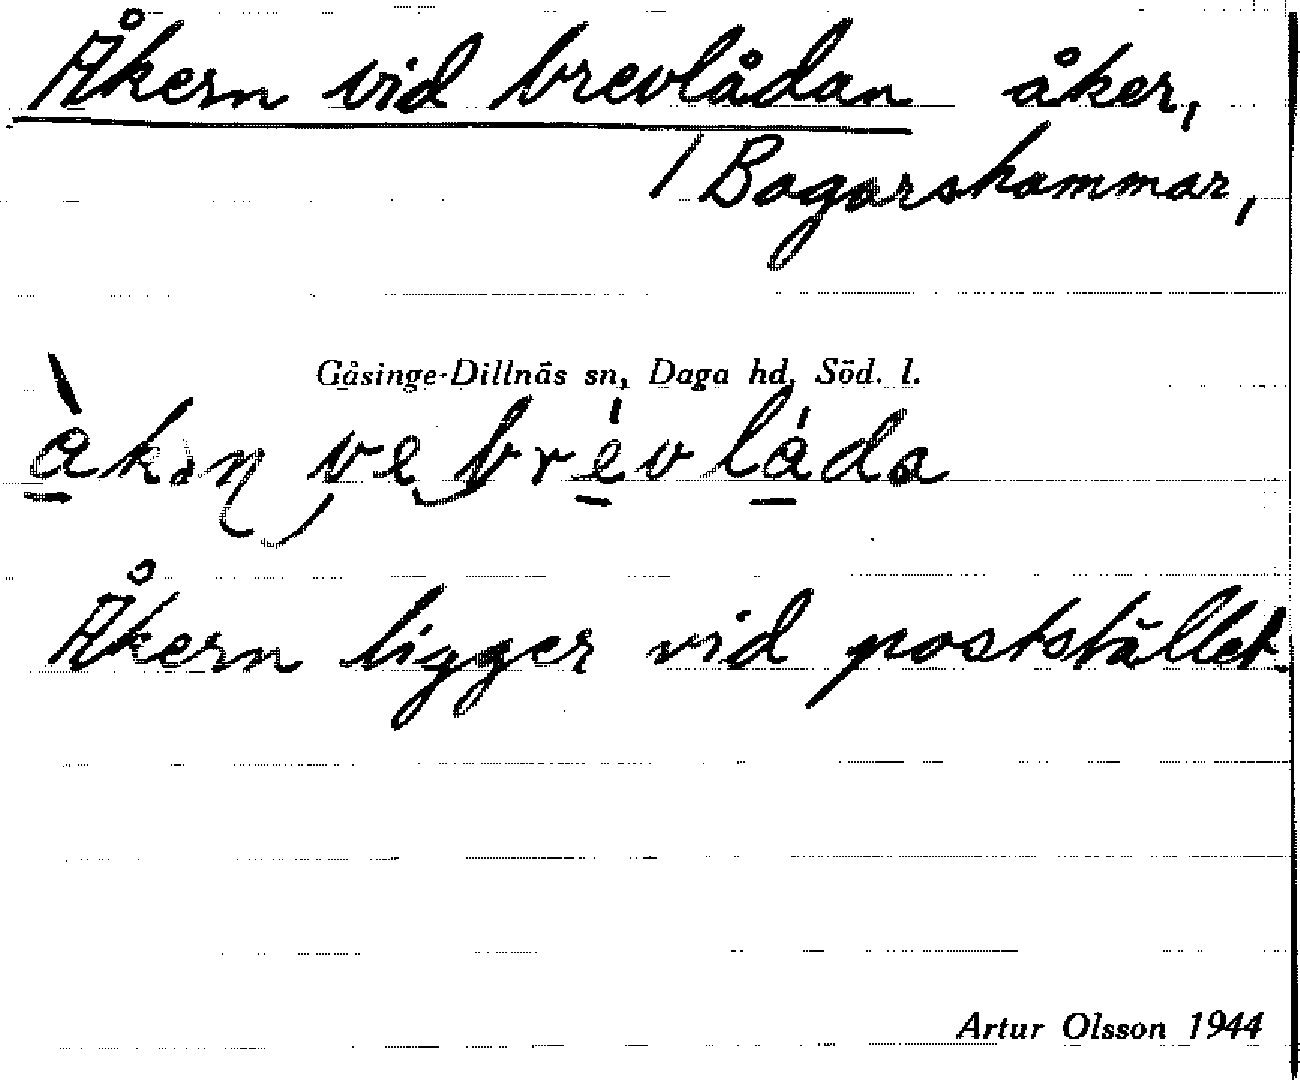 Åkern vid brevlådan åker,
/ Bagarshammar,
Gåsinge-Dillnäs sn, Daga hd, Söd. l.
ve brévláda
Åkern ligger vid poststället.
Artur Olsson 1944